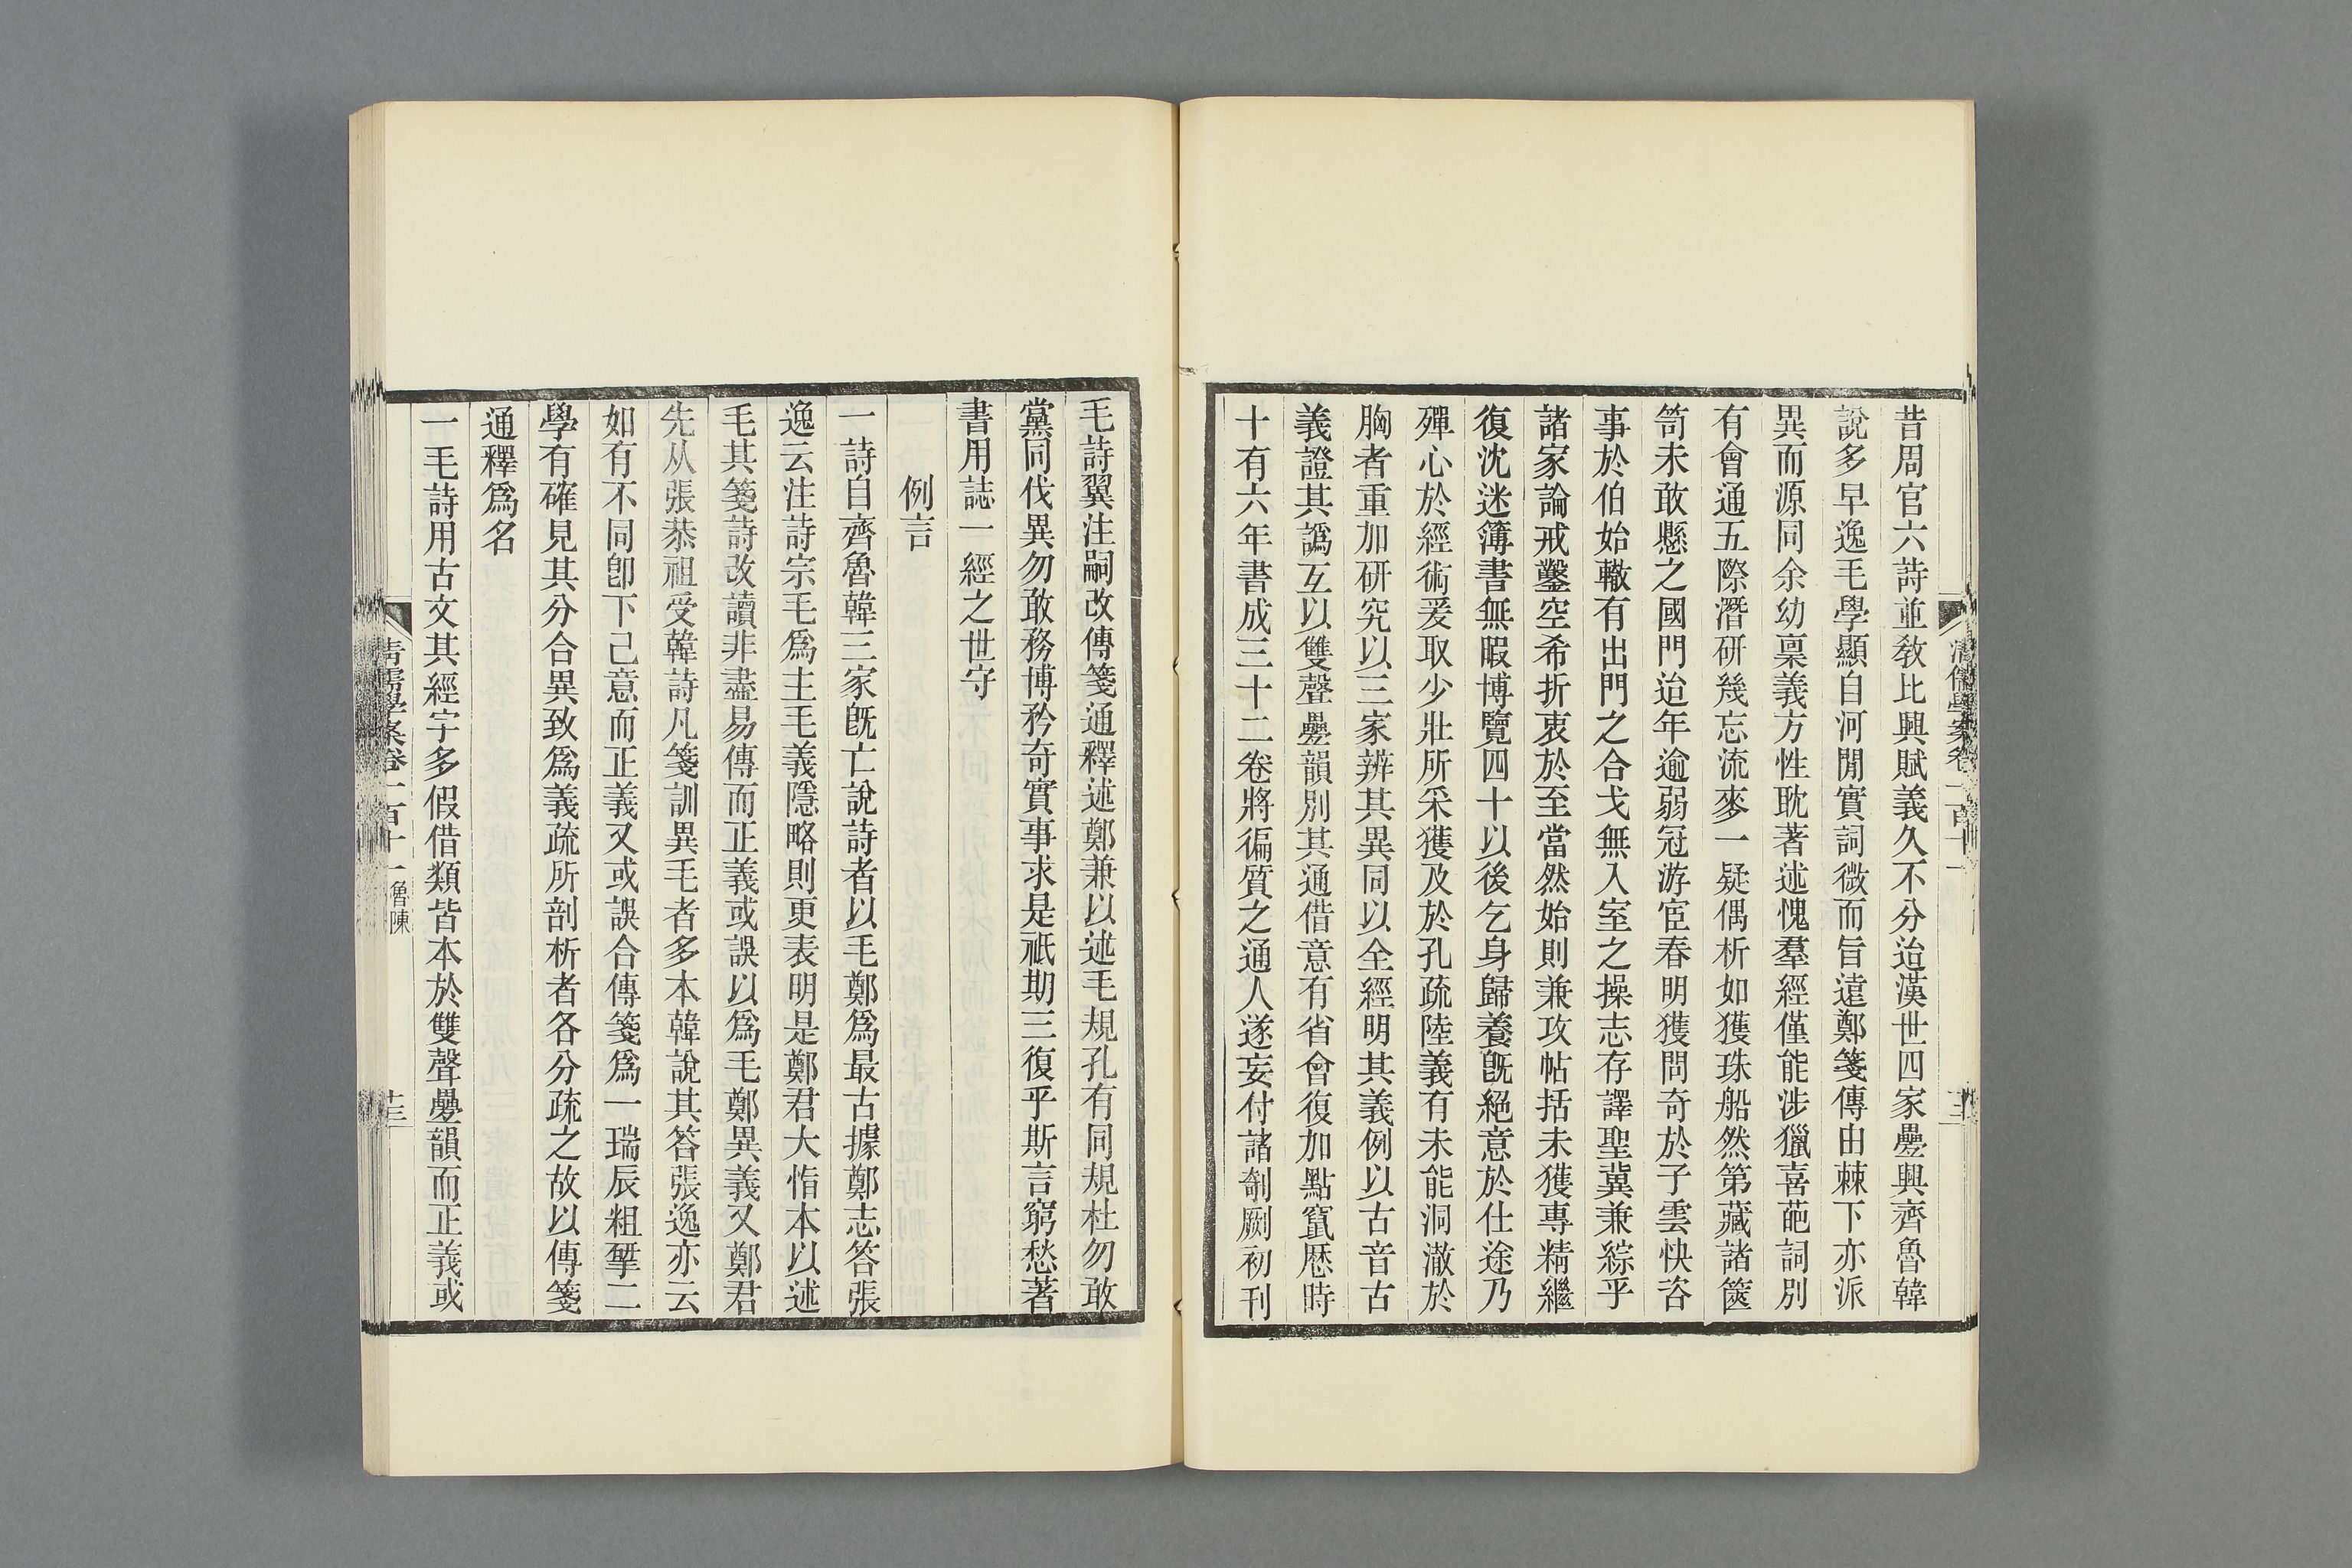 昔周官六詩並敎比興賦義久不分迨漢世四家疊興齊魯韓
說多早逸毛學顯自河閒實詞微而旨遠鄭箋傳由棘下亦派
異而源同余幼稟義方性耽著述愧羣經僅能涉獵喜葩詞別
有會通五際潛研幾忘流麥一疑偶析如獲珠船然第藏諸篋
笥未敢懸之國門迨年逾弱冠游宦春明獲問奇於子雲快咨
事於伯始轍有出門之合戈無入室之操志存譯聖冀兼綜乎
諸家論戒鑿空希折衷於至當然始則兼攻帖括未獲專精繼
復沈迷簿書無暇博覽四十以後乞身歸養旣絕意於仕途乃
殫心於經術爰取少壯所采獲及於孔疏陸義有未能洞澈於
胸者重加研究以三家辨其異同以全經明其義例以古音古
義證其譌互以雙聲疊韻別其通借意有省會復加點竄歷時
十有六年書成三十二卷將徧質之通人遂妄付諸剞劂初刊
毛詩翼注嗣改傳箋通釋述鄭兼以述毛規孔有同規杜勿敢
黨同伐異勿敢務博矜奇實事求是祇期三復乎斯言窮愁著
書用誌一經之世守
例言
一詩自齊魯韓三家旣亡說詩者以毛鄭爲最古據鄭志答張
逸云注詩宗毛爲主毛義隱略則更表明是鄭君大恉本以述
毛其箋詩改讀非盡易傳而正義或誤以爲毛鄭異義又鄭君
先从張恭祖受韓詩凡箋訓異毛者多本韓說其答張逸亦云
如有不同卽下己意而正義又或誤合傳箋爲一瑞辰粗揅二
學有確見其分合異致爲義疏所剖析者各分疏之故以傳箋
通釋爲名
一毛詩用古文其經字多假借類皆本於雙聲疊韻而正義或
清儒學案卷一百十一 魯陳
十三